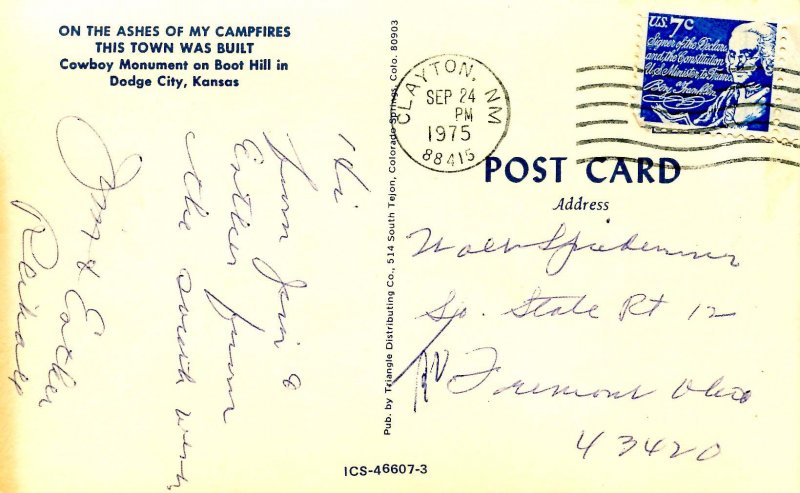 ON THE ASHES OF MY CAMPFIRES
THIS TOWN WAS BUILT
Cowboy Monument on Boot Hill in
Dodge City, Kansas
Hi
from Jim &
Esther from
the south west
Jim & Esther
Pub. by Triangle Distributing Co., 514 South Tejon, Colorado Springs, Colo. 80903
CLAYTON, NM
SEP 24
PM
1975
88415
U.S. 7c
Signer of the Declara
and the Constitution
U.S. Minister to Franc
Benj Franklin
POST CARD
Address
So. State Rt 12
Fremont Ohio
43420
ICS-46607-3